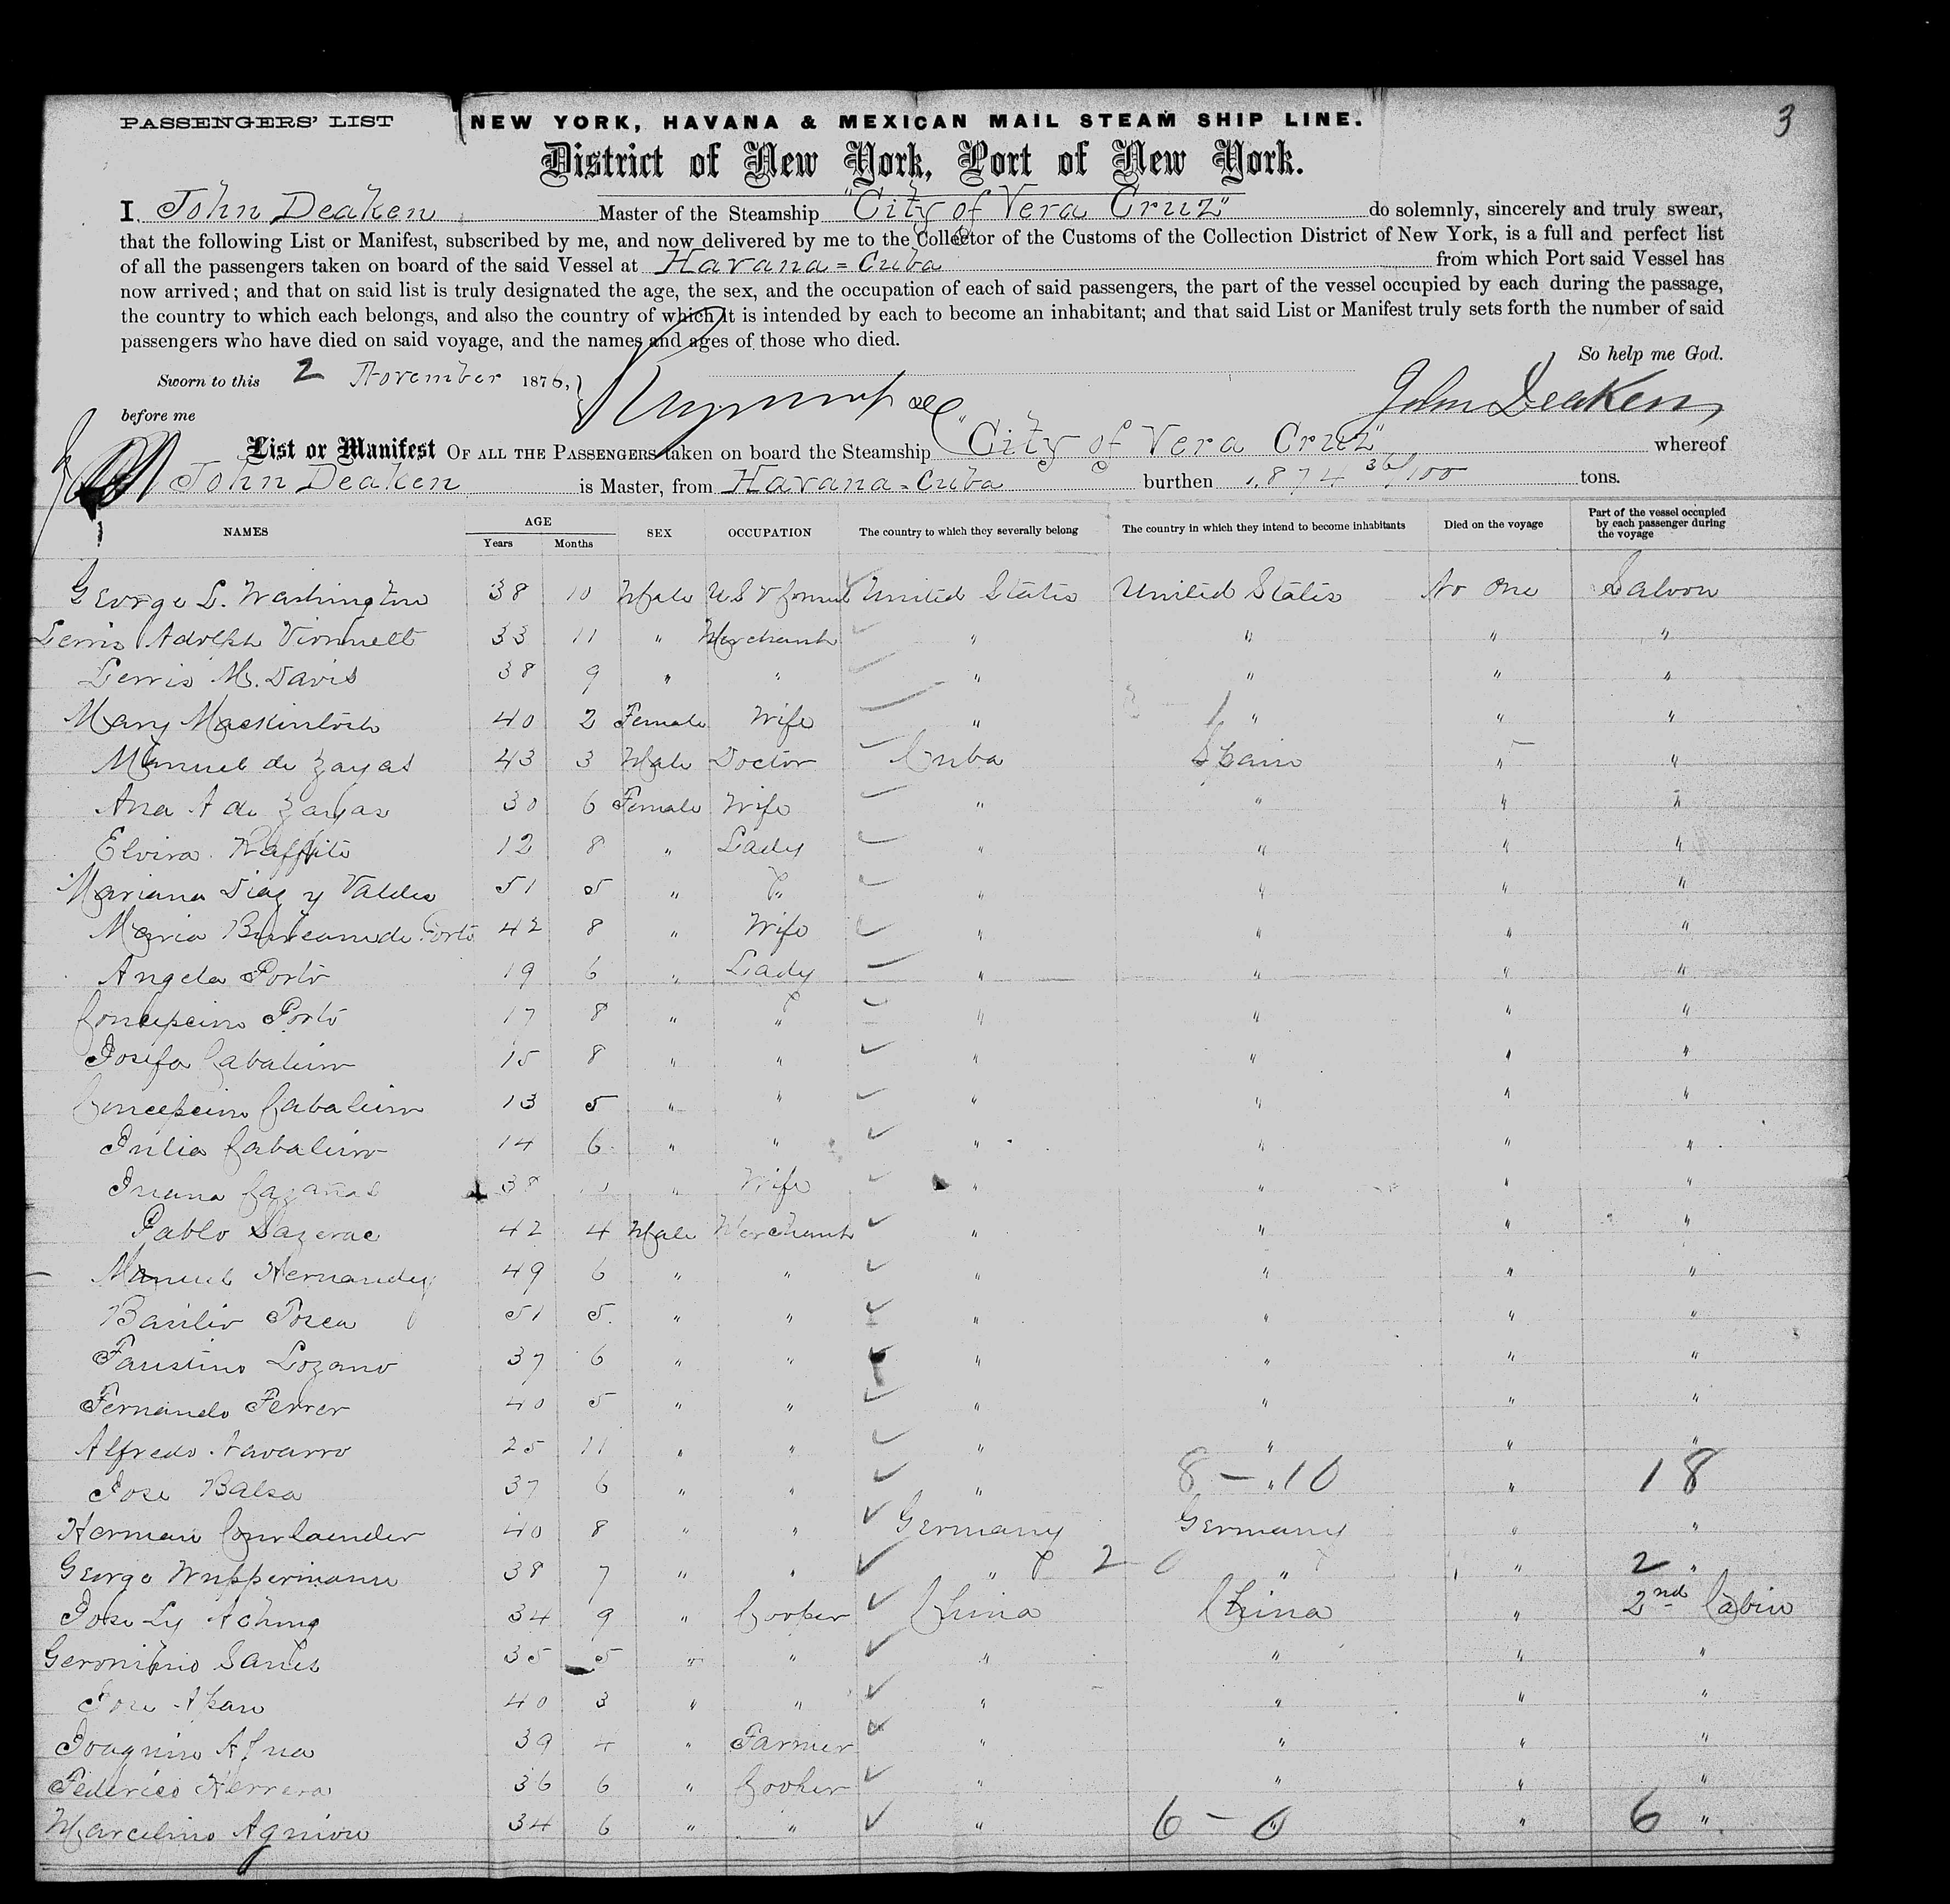 3
PASSENGERS' LIST NEW YORK, HAVANA & MEXICAN MAIL STEAM SHIP LINE.
District of New York, Port of New York.
I John Deaken Master of the Steamship "City of Vera Cruz" do solemnly, sincerely and truly swear,
that the following List or Manifest, subscribed by me, and now delivered by me to the Collector of the Customs of the Collection District of New York, is a full and perfect list
of all the passengers taken on board of the said Vessel at Havana = Cuba from which Port said Vessel has
now arrived; and that on said list is truly designated the age, the sex, and the occupation of each of said passengers, the part of the vessel occupied by each during the passage,
the country to which each belongs, and also the country of which it is intended by each to become an inhabitant; and that said List or Manifest truly sets forth the number of said
passengers who have died on said voyage, and the names and ages of those who died.
So help me God.
Sworn to this 2 November 1876,
before me John Deaken
List or Manifest OF ALL THE PASSENGERS taken on board the Steamship "City of Vera Cruz" whereof
John Deaken is Master, from Havana = Cuba burthen 1.874 36/100 tons.
NAMES AGE Years Months SEX OCCUPATION The country to which they severally belong The country in which they intend to become inhabitants Died on the voyage Part of the vessel occupied by each passenger during the voyage
George L. Washington 38 10 Male U.S. United States United States No one Saloon
Lewis Adolph 33 11 " Merchant " " " "
Lewis M. Davis 38 9 " " " " " "
Mary Mackintosh 40 2 Female Wife " " " "
Manuel de Zayas 43 3 Male Doctor Cuba Spain " "
Ana A de Zayas 30 6 Female Wife " " " "
Elvira 12 8 " Lady " " " "
Mariana Diaz y Valdes 51 5 " " " " " "
Maria de Porto 42 8 " Wife " " " "
Angela Porto 19 6 " Lady " " " "
Concepcion Porto 17 8 " " " " " "
Josefa Cabaleiro 15 8 " " " " " "
Concepcion Cabaleiro 13 5 " " " " " "
Julia Cabaleiro 14 6 " " " " " "
Juana Cazañas 38 11 " Wife " " " "
Pablo Sazerac 42 4 Male Merchant " " " "
Manuel Hernandez 49 6 " " " " " "
Basilio 51 5 " " " " " "
Faustino Lozano 37 6 " " " " " "
Fernando Ferrer 40 5 " " " " " "
Alfredo Navarro 25 11 " " " " " "
Jose Balsa 37 6 " " " 8 – " 10 " 18
Herman Courlaender 40 8 " " Germany Germany " "
George Wuppermann 38 7 " " " 2 0 " " 2 "
Jose Ly Aching 34 9 " Cooker China China " 2nd Cabin
Geronimo Sanes 35 5 " " " " " "
Jose Apan 40 3 " " " " " "
Joaquin 39 4 " Farmer " " " "
Federico Herrera 36 6 " Cooker " " " "
Marcelino 34 6 " " " 6 – 0 " 6 "